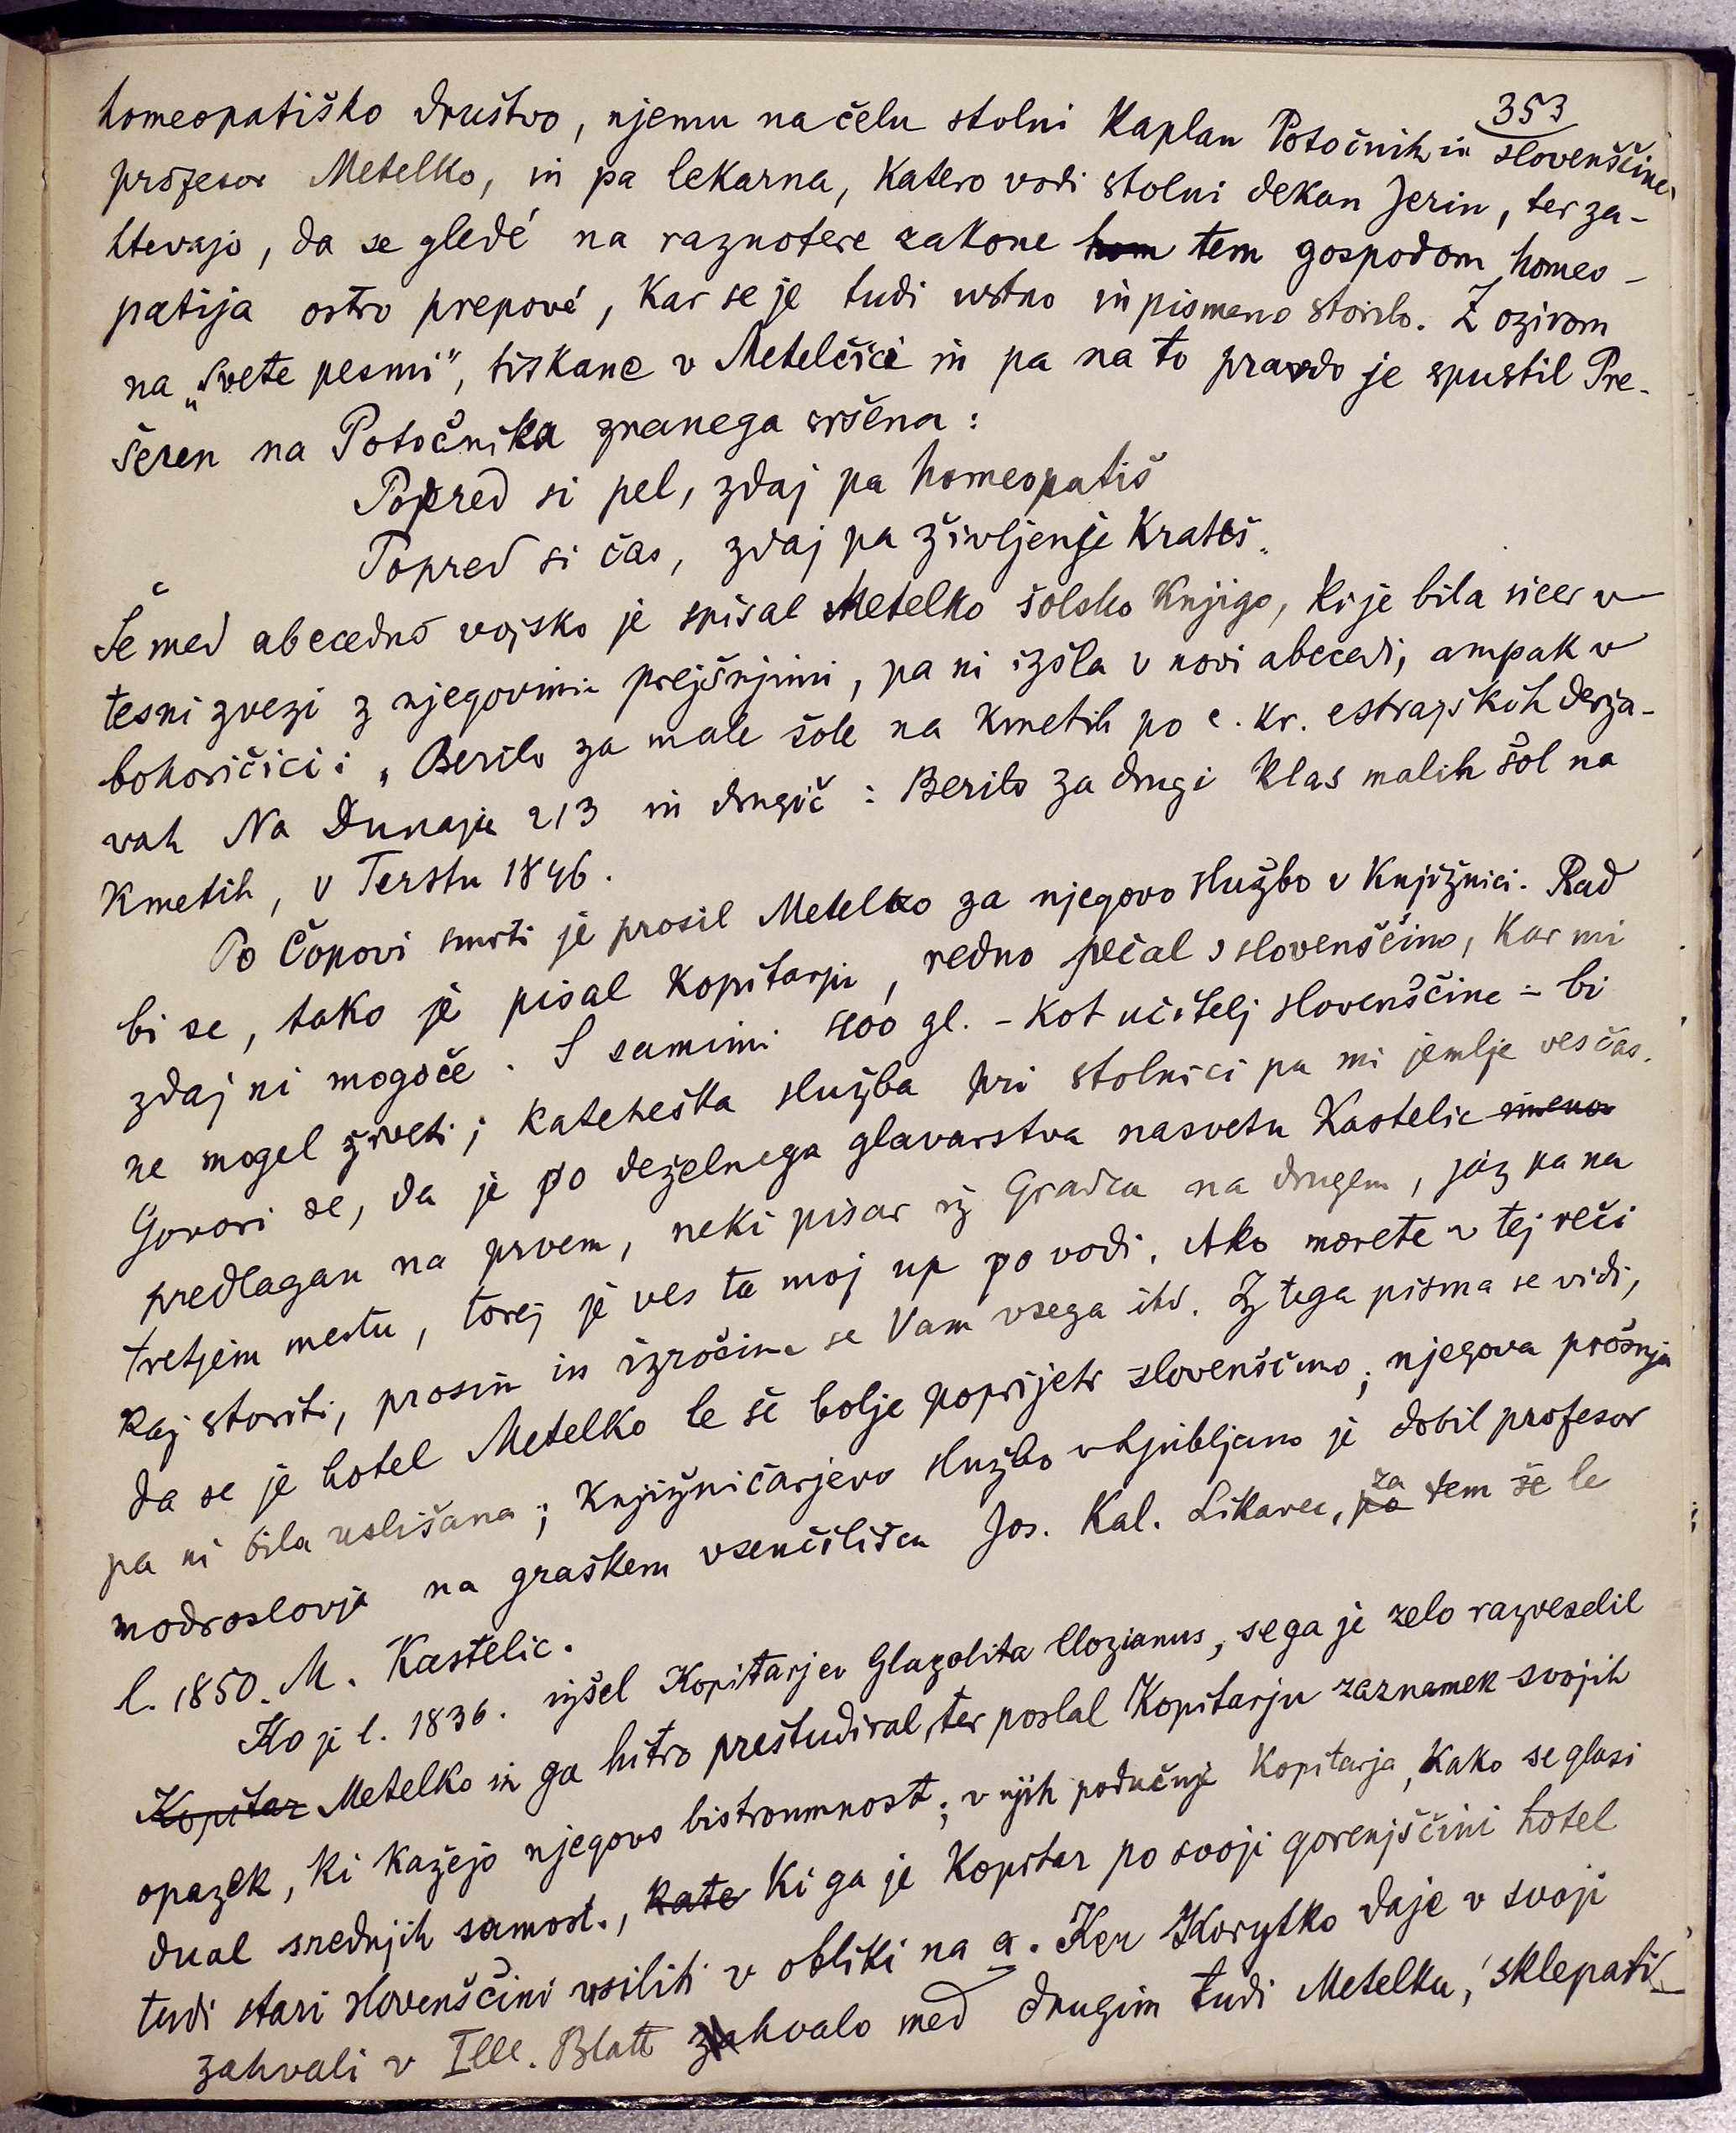 353
homeopatiško društvo, njemu načelu stolni kaplan Potočnik in slovenščine
profesor Metelko, in pa lekarna, katero vodi stolni dekan Jerin, ter za-
htevajo, da se gledé na raznotere zakone hom tem gospodom homeo-
patija ostro prepové, kar se je tudi ustno in pismeno storilo. Z ozirom
na „svete pesmi", tiskane v Metelčici in pa na to pravdo je spustil Pre-
šeren na Potočnika znanega sršena:
Popred si pel, zdaj pa homeopatiš
Popred si čas, zdaj pa življenje kratiš.
Še med abecedno vojsko je spisal Metelko šolsko knjigo, ki je bila sicer v
tesni zvezi z njegovimi prejšnjimi, pa ni izšla v novi abecedi, ampak v
bohoričici: „Berilo za male šole na kmetih po c. kr. estrajskih derža-
vah Na Dunaju 213 in drugič: Berilo za drugi klas malih šol na
kmetih, v Terstu 1846.
Po Čopovi smrti je prosil Metelko za njegovo službo v knjižnici. Rad
bi se, tako je pisal Kopitarju, redno pečal s slovenščino, kar mi
zdaj ni mogoče. S samimi 400 gl. - kot učitelj slovenščine - bi
ne mogel živeti; kateheška služba pri stolnici pa mi jemlje ves čas.
Govori se, da je po deželnega glavarstva nasvetu Kastelic imenov
predlagan na prvem, neki pisar iz Gradca na drugem, jaz pa na
tretjem mestu, torej je ves ta moj up po vodi. Ako morete v tej reči
kaj storiti, prosim in izročim se Vam vsega itd. Iz tega pisma se vidi,
da se je hotel Metelko le še bolje poprijeti slovenščine; njegova prošnja
pa ni bila uslišana; knjižničarjevo službo v Ljubljano je dobil profesor
modroslovja na graškem vseučilišču Jos. Kal. Likavec, po za tem še le
l. 1850. M. Kastelic.
Ko je l. 1836. izšel Kopitarjev Glagolita Clozianus, sega je zelo razveselil
Kopitar Metelko in ga hitro preštudiral, ter poslal Kopitarju zaznamek svojih
opazek, ki kažejo njegovo bistroumnost; v njih podučuje Kopitarja, kako se glasi
dual srednjih samost., kate ki ga je Kopitar po svoji gorenjščini hotel
tudi stari slovenščini usiliti v obliki na a. Ker Korytko daje v svoji
zahvali v Ill. Blatt zahvalo med drugim tudi Metelku, sklepati